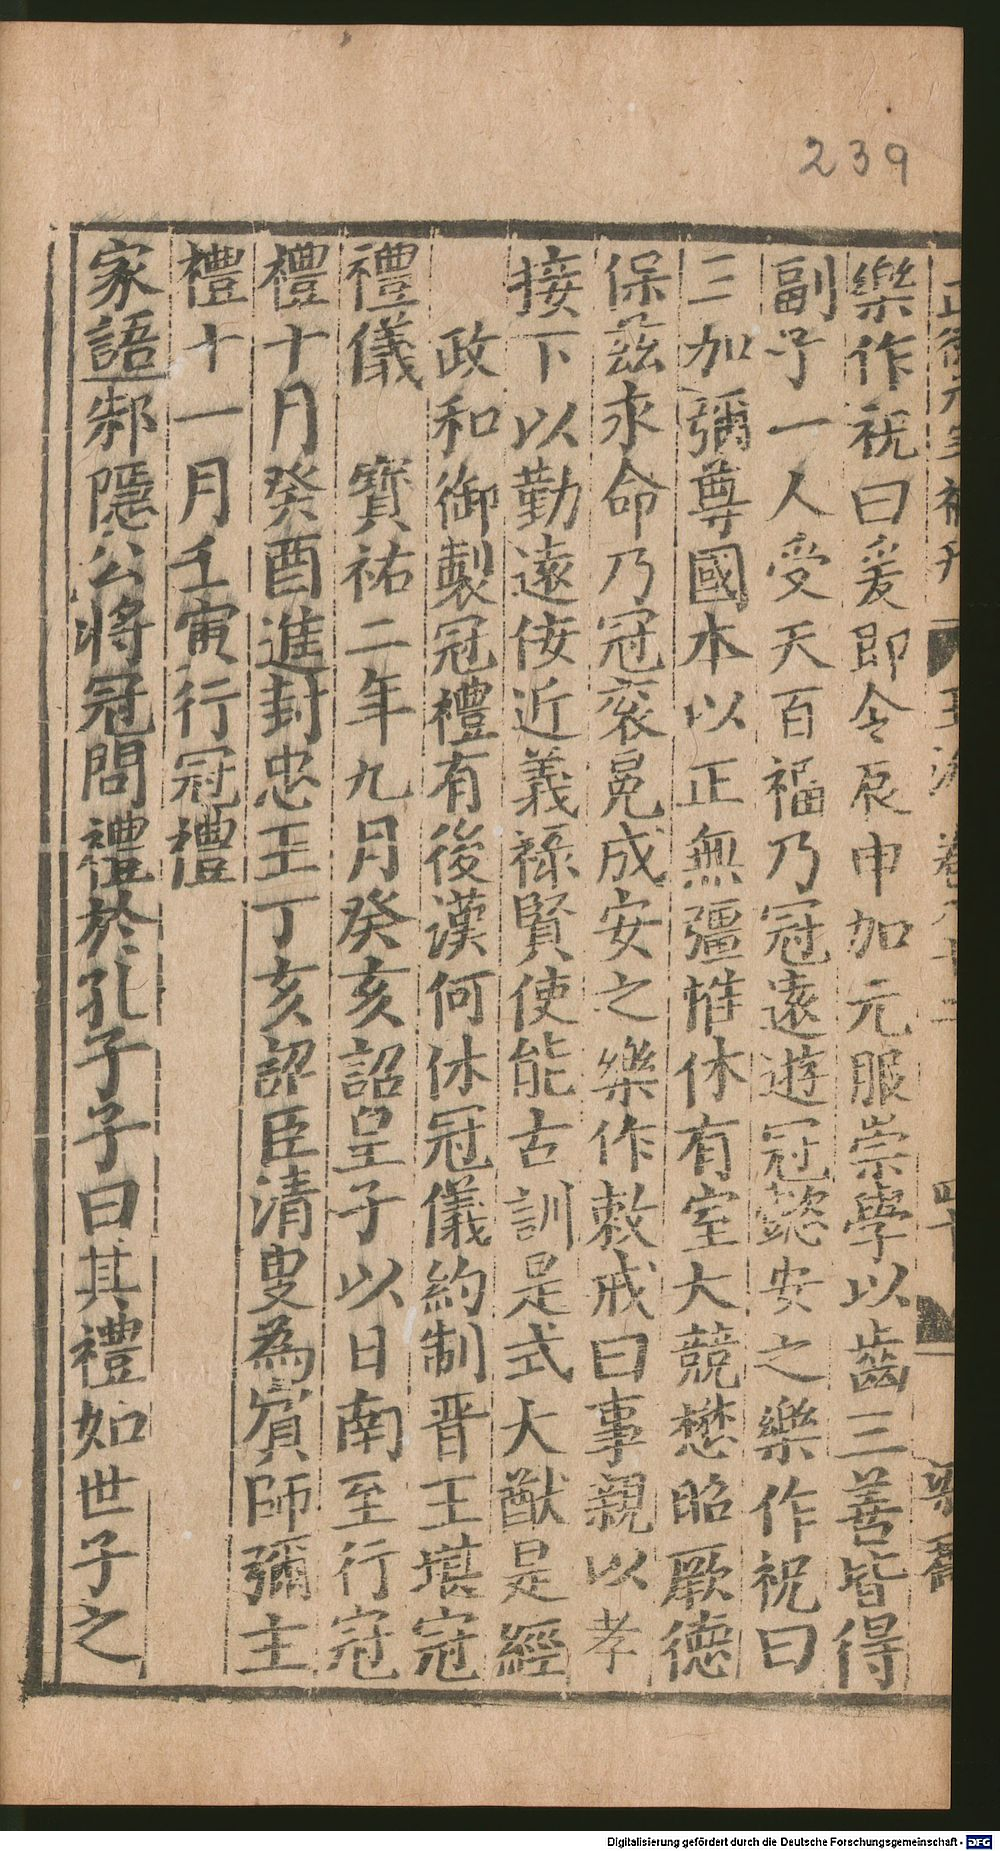 239
樂作祝曰爰即令辰申加元服崇學以齒三善皆得
副予一人受天百福乃冠遠遊冠懿安之樂作祝曰
三加彌尊國本以正無彊惟休有室大競懋昭厥德
保茲永命乃冠衮冕成安之樂作敕戒曰事親以孝
接下以勤遠佞近義祿賢使能古訓是式大猷是經
政和御製冠禮有後漢何休冠儀約制晉王堪冠
禮儀　寶祐二年九月癸亥詔皇子以日南至行冠
禮十月癸酉進封忠王丁亥詔臣清叟為賓師彌主
禮十一月壬寅行冠禮
家語邾隱公將冠問禮於孔子子曰其禮如世子之
Digitalisierung gefördert durch die Deutsche Forschungsgemeinschaft - DFG